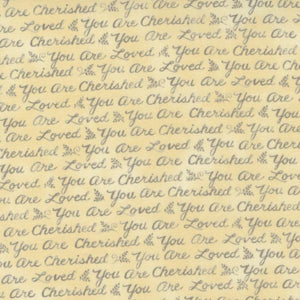 You Are Loved
Are Cherished You Are Loved
Are Loved You Are Cherished
Cherished You Are Loved You
Loved You Are Cherished You
You Are Loved You Are
You Are Cherished You Are
Are Loved You Are Cherished
Cherished You Are Loved
Loved You Are Cherished
Cherished You Are Loved You
You Are Cherished You Are
You Are Loved You Are
Are Cherished You Are Loved
Are Loved You Are Cherished
Cherished You Are Loved
Loved You Are Cherished